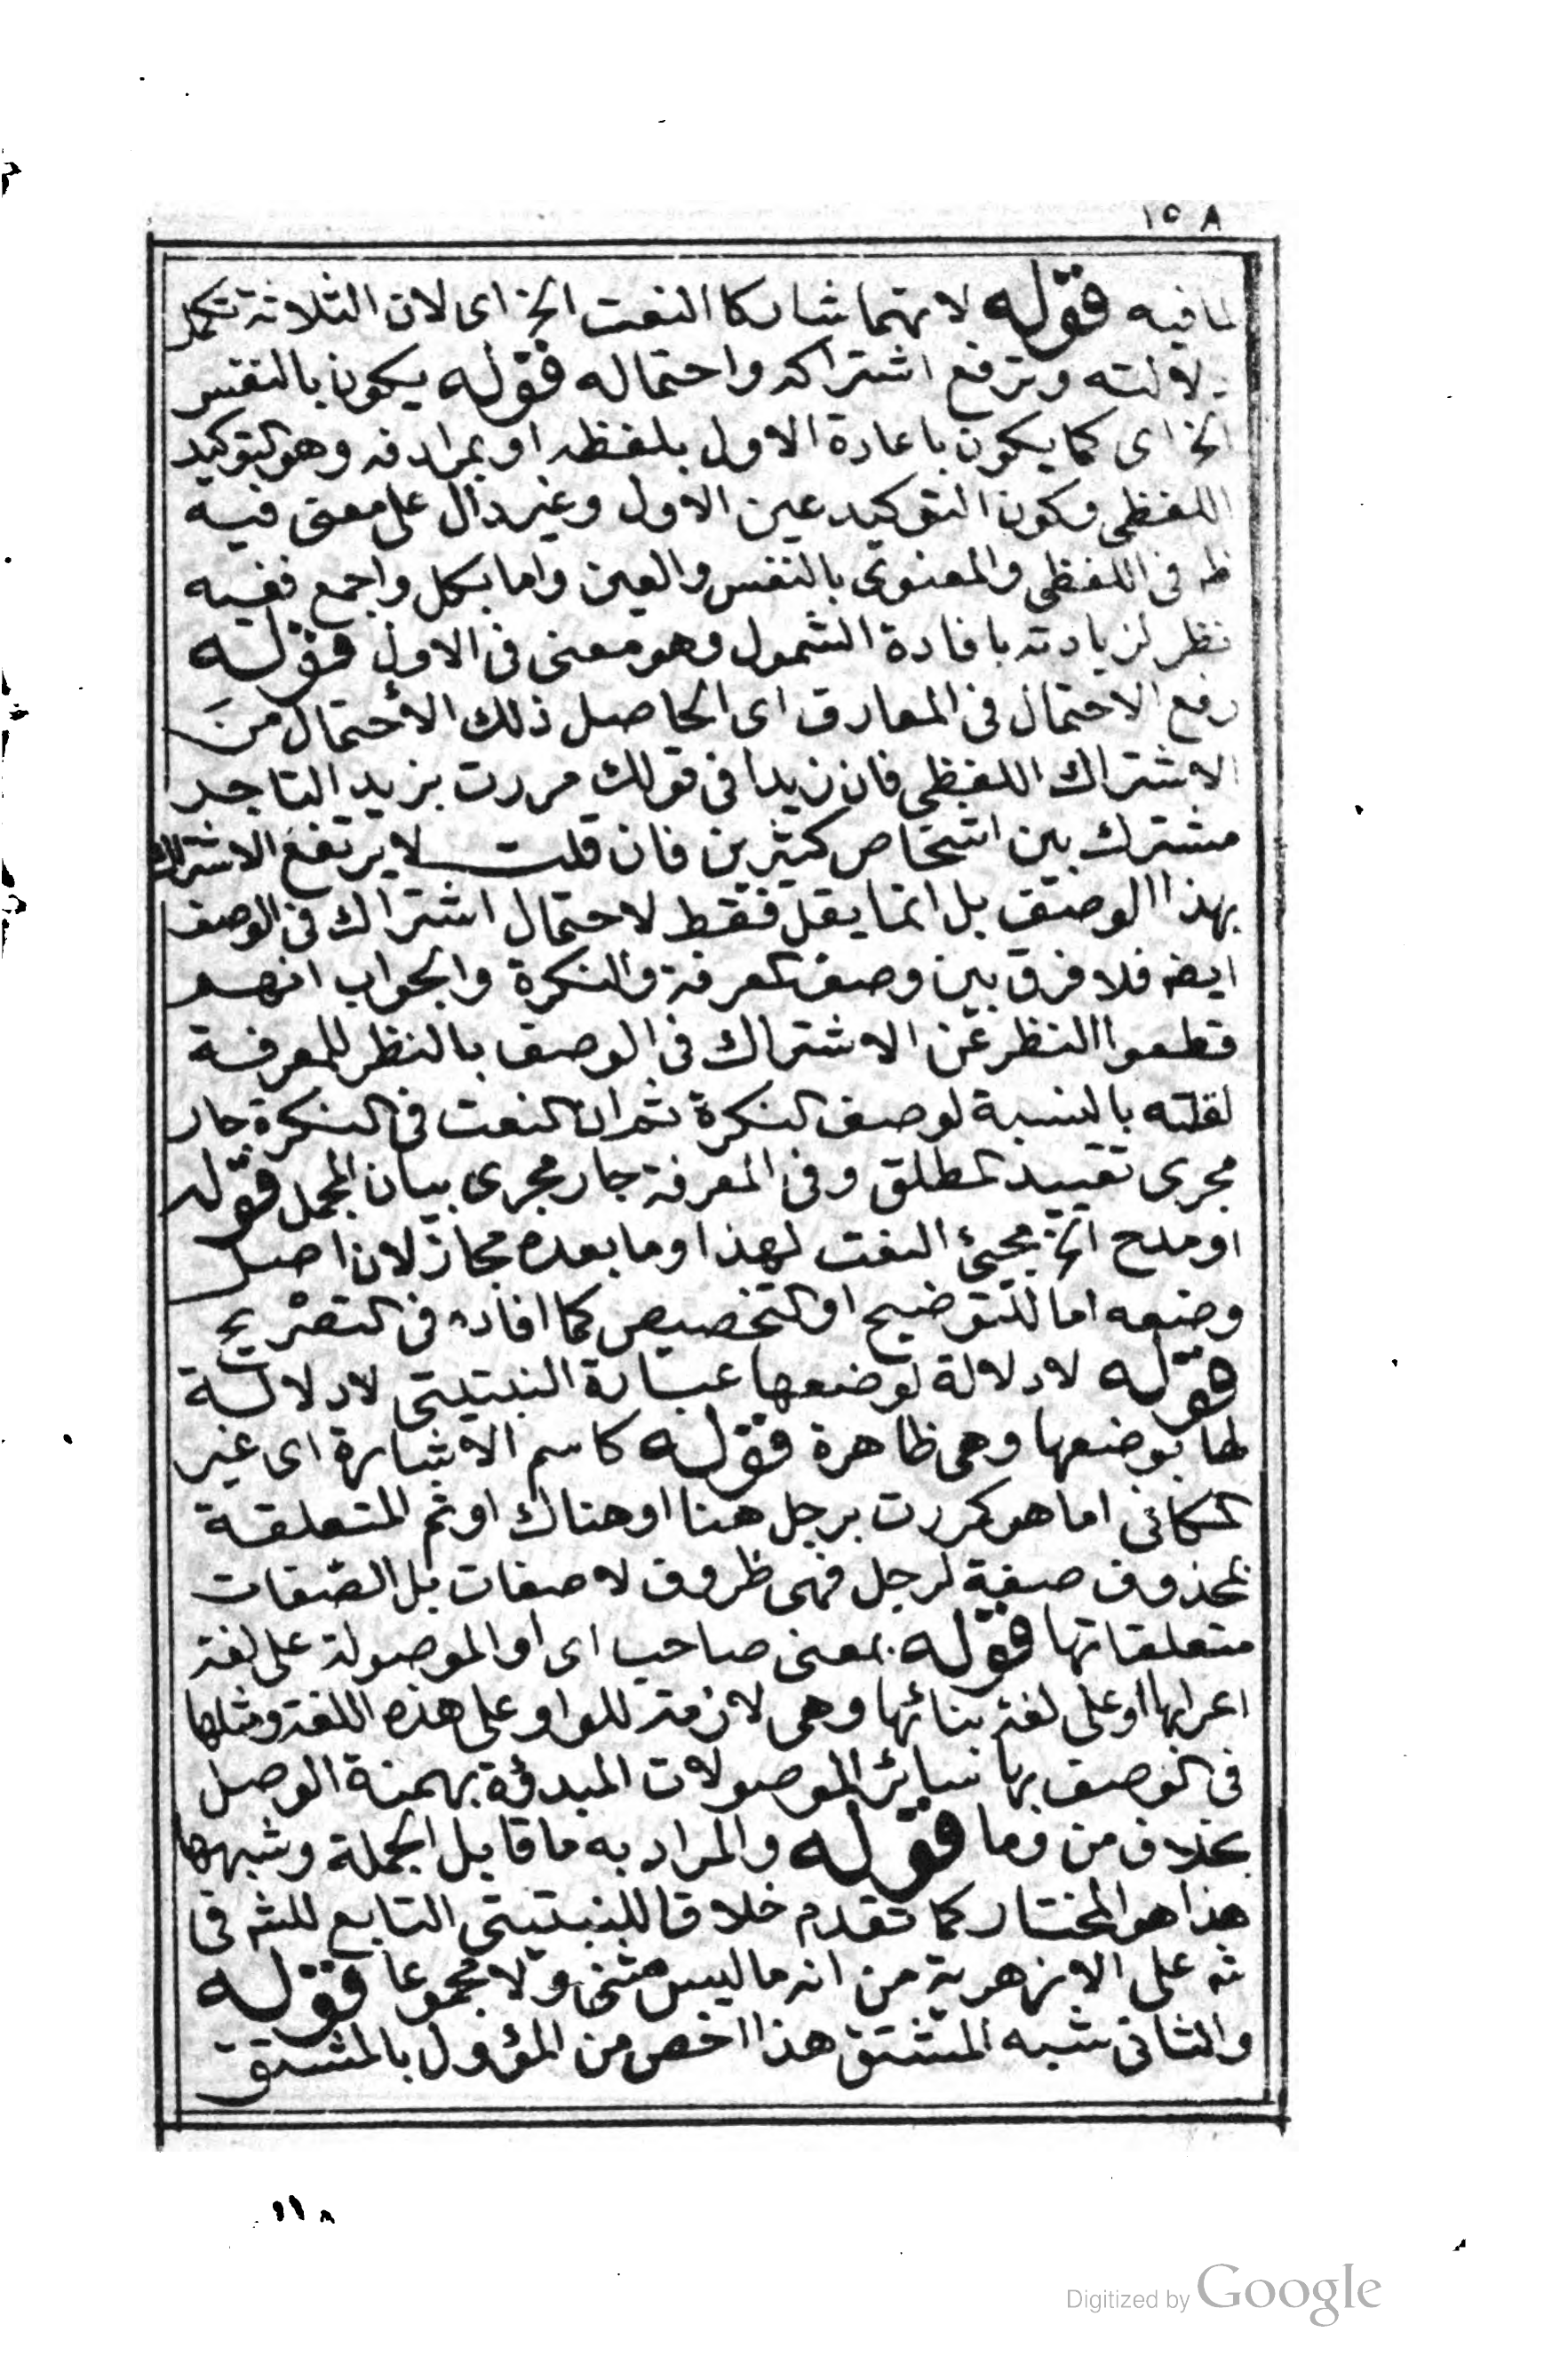 ١٥٨
لما فيه قوله لانهما شاركا النعت الخ اى لان الثلاثة تكمل
دلالته وترفع اشتراكه واحتماله قوله يكون بالنفس
الخ اى كما يكون باعادة الاول بلفظه او بمرادفه وهو التوكيد
اللفظى وكون التوكيد عين الاول وغير دال على معنى فيه
ظه فى اللفظى والمعنوى بالنفس والعين واما بكل واجمع ففيه
نظر لزيادته بافادة الشمول وهو معنى فى الاول قوله
رفع الاحتمال فى المعارف اى الحاصل ذلك الاحتمال من
الاشتراك اللفظى فان زيدا فى قولك مررت بزيد التاجر
مشترك بين اشخاص كثيرين فان قلت لا يرتفع الاشتراك
بهذا الوصف بل انما يقل فقط لاحتمال اشتراك فى الوصف
ايضه فلا فرق بين وصف المعرفة والنكرة والجواب انهم
قطعوا النظر عن الاشتراك فى الوصف بالنظر للمعرفة
لقلته بالنسبة لوصف النكرة ثم ان النعت فى النكرة جار
مجرى تقييد المطلق وفى المعرفة جار مجرى بيان المجمل قوله
او مدح الخ مجيئ النعت لهذا وما بعده مجاز لان اصل
وضعه اما للتوضيح او التخصيص كما افاده فى التصريح
قوله لا دلالة لوضعها عبارة النبتيتى لا دلالة
لها بوضعها وهى ظاهرة قوله كاسم الاشارة اى غير
المكانى اما هو كمررت برجل هنا او هناك او ثم المتعلقة
بمحذوف صفة لرجل فهى ظروف لا صفات بل الصفات
متعلقاتها قوله بمعنى صاحب اى او الموصولة على لغة
اعرابها او على لغة بنائها وهى لازمة للواو على هذه اللغة ومثلها
فى الوصف بها سائر الموصولات المبدؤة بهمزة الوصل
بخلاف من وما قوله والمراد به ما قابل الجملة وشبهها
هذا هو المختار كما تقدم خلافا للنبتيتى التابع للشه فى
شه على الازهرية من انه ما ليس مثنى ولا مجموعا قوله
والثانى شبه المشتق هذا اخص من المؤول بالمشتق
Digitized by Google